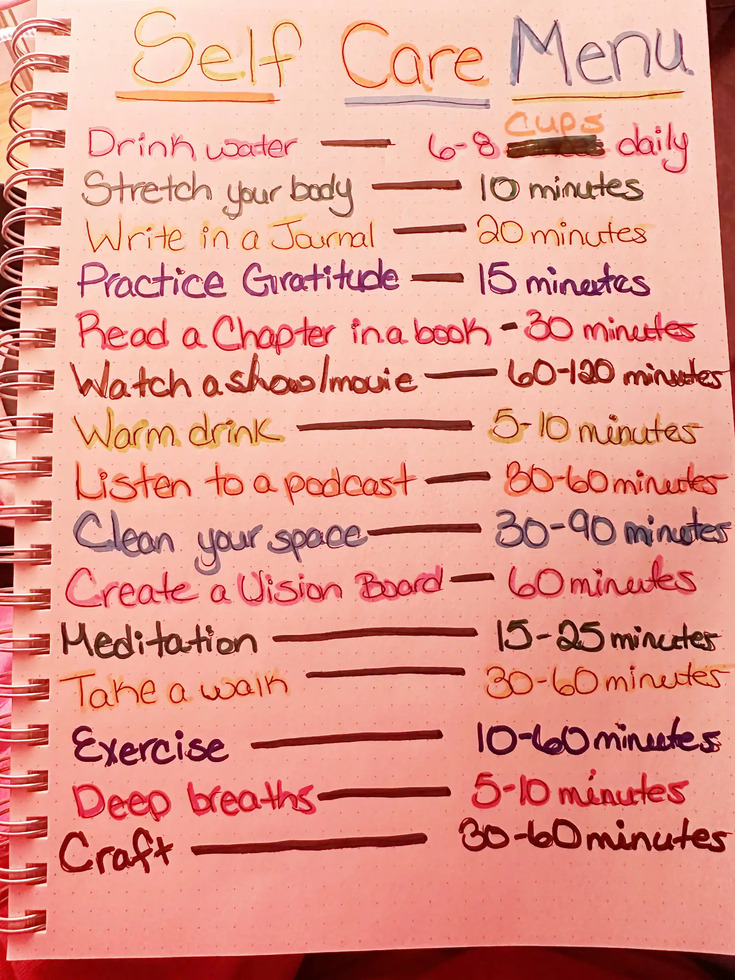 Self Care Menu
Drink water — 6-8 cups daily
Stretch your body — 10 minutes
Write in a Journal — 20 minutes
Practice Gratitude — 15 minutes
Read a Chapter in a book - 30 minutes
Watch a show/movie — 60-120 minutes
Warm drink — 5-10 minutes
Listen to a podcast — 30-60 minutes
Clean your space — 30-90 minutes
Create a Vision Board — 60 minutes
Meditation — 15-25 minutes
Take a walk — 30-60 minutes
Exercise — 10-60 minutes
Deep breaths — 5-10 minutes
Craft — 30-60 minutes